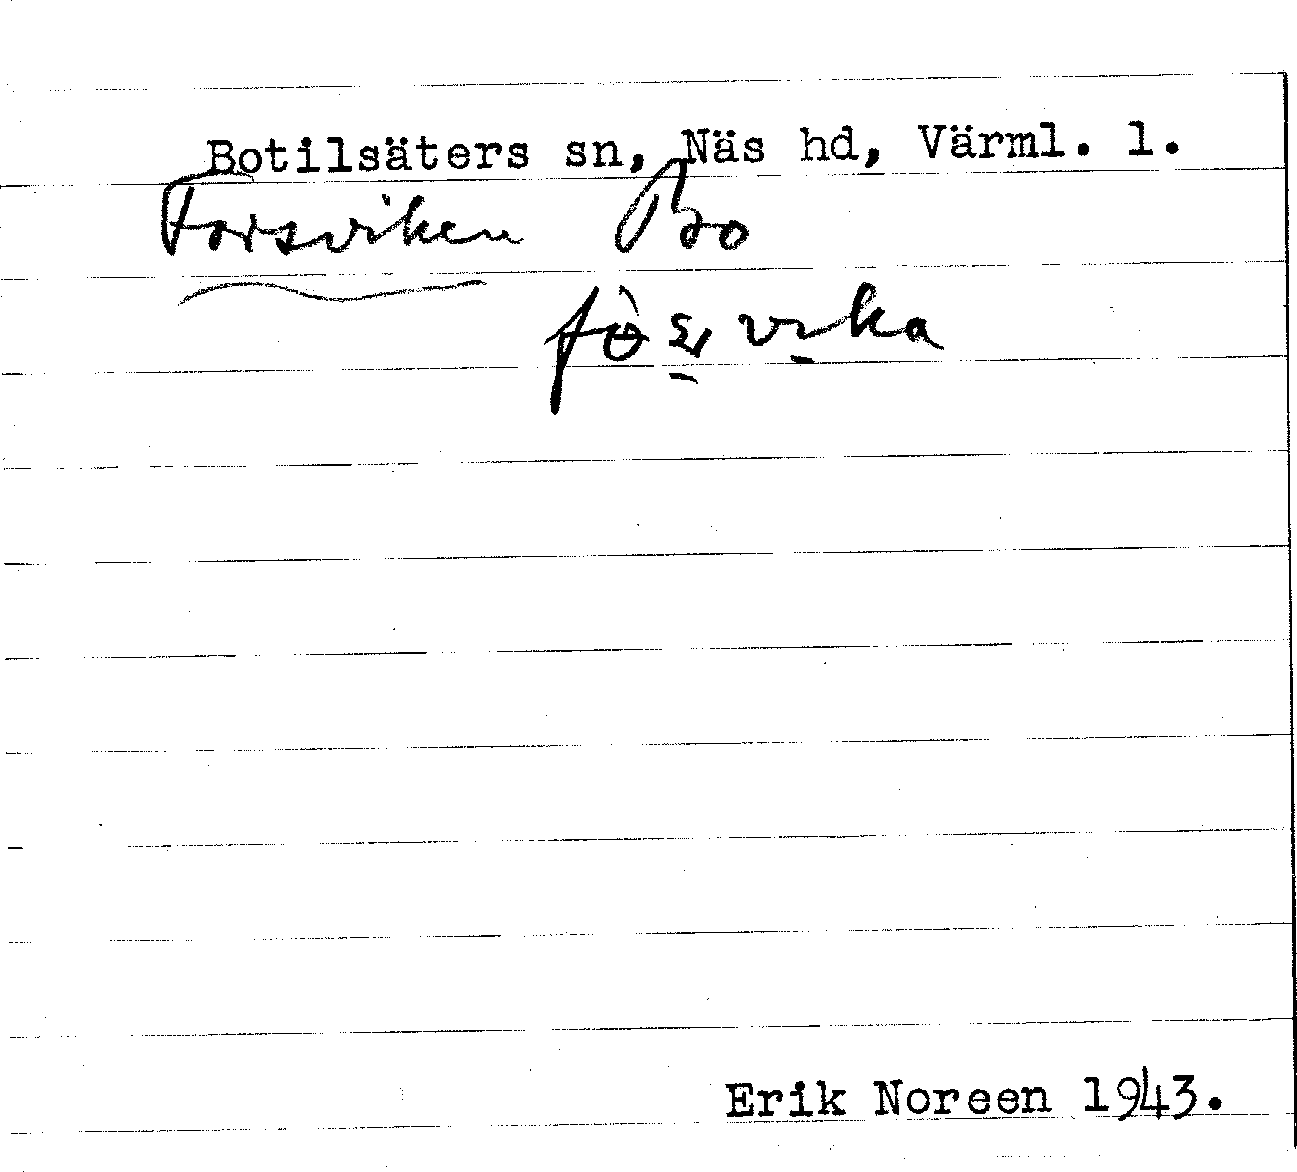 Botilsäters sn, Näs hd, Värml. l.
Forsviken Bo
fö̀ș vi̠ka
Erik Noreen 1943.